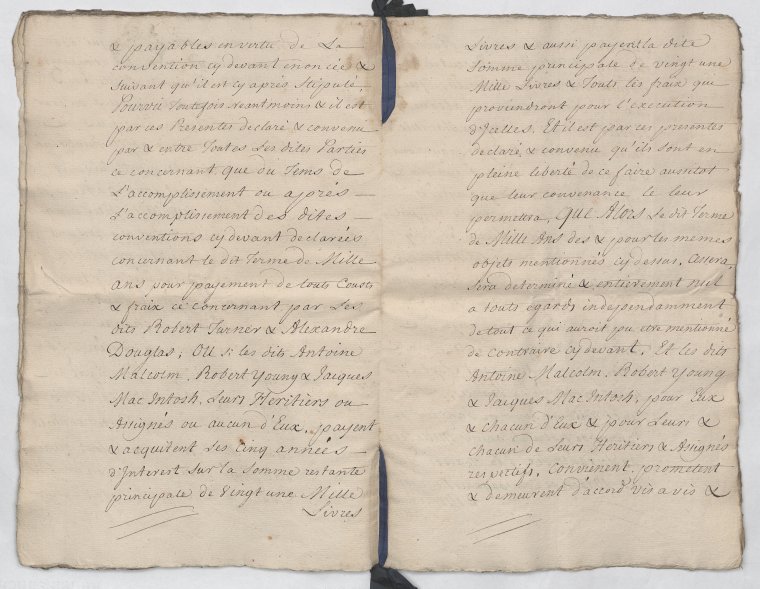 & payables en vertu de La
convention cy devant enoncée &
suivant qu'il est cy après Stipulé,
Pourvû Toutefois Neantmoins & il est
par ces Presentes declaré & convenu
par & entre Toutes Les dites Parties
ce concernant que du Tems de
L'accomplissement ou après —
L'accomplissement des dites —
conventions cy devant declarées
concernant le dit Terme de Mille
ans pour payement de touts Cousts
& fraix ce concernant par Les
dits Robert Turner & Alexandre
Douglas, Ou si les dits Antoine
Malcolm, Robert Young & Jacques
Mac Intosh, Leurs Heritiers ou
Assignés ou aucun d'Eux, payent
& acquitent Les Cinq années —
d'Interest sur la somme restante
principale de Vingt une Mille
Livres
Livres & aussi payent la dite
Somme principale de vingt une
Mille Livres & Touts les fraix qui
proviendront pour l'execution
d'Jcelles. Et il est par ces presentes
declaré & convenu qu'ils sont en
pleine liberté de ce faire aussitot
que leur convenance le leur
permettra, Que Alors Le dit Terme
de Mille Ans des & pour les memes
objets mentionnés cy dessus, Cessera,
Sera determiné & entierement nul
a touts égards independamment
de tout ce qui auroit pu etre mentionné
de contraire cy devant. Et les dits
Antoine Malcolm, Robert Young
& Jacques Mac Intosh, pour Eux
& chacun d'Eux & pour Leurs &
chacun de Leurs Heritiers & Assignés
respectifs, Convienent, prometent
& demeurent d'accord vis a vis &